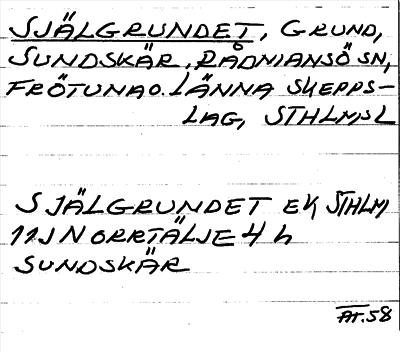 SJÄLGRUNDET, GRUND,
SUNDSKÄR, RÅDMANSÖ SN,
FRÖTUNA O. LÄNNA SKEPPS-
LAG, STHLMSL
SJÄLGRUNDET EK STHLM
11J NORRTÄLJE 4 h
SUNDSKÄR
AT.58